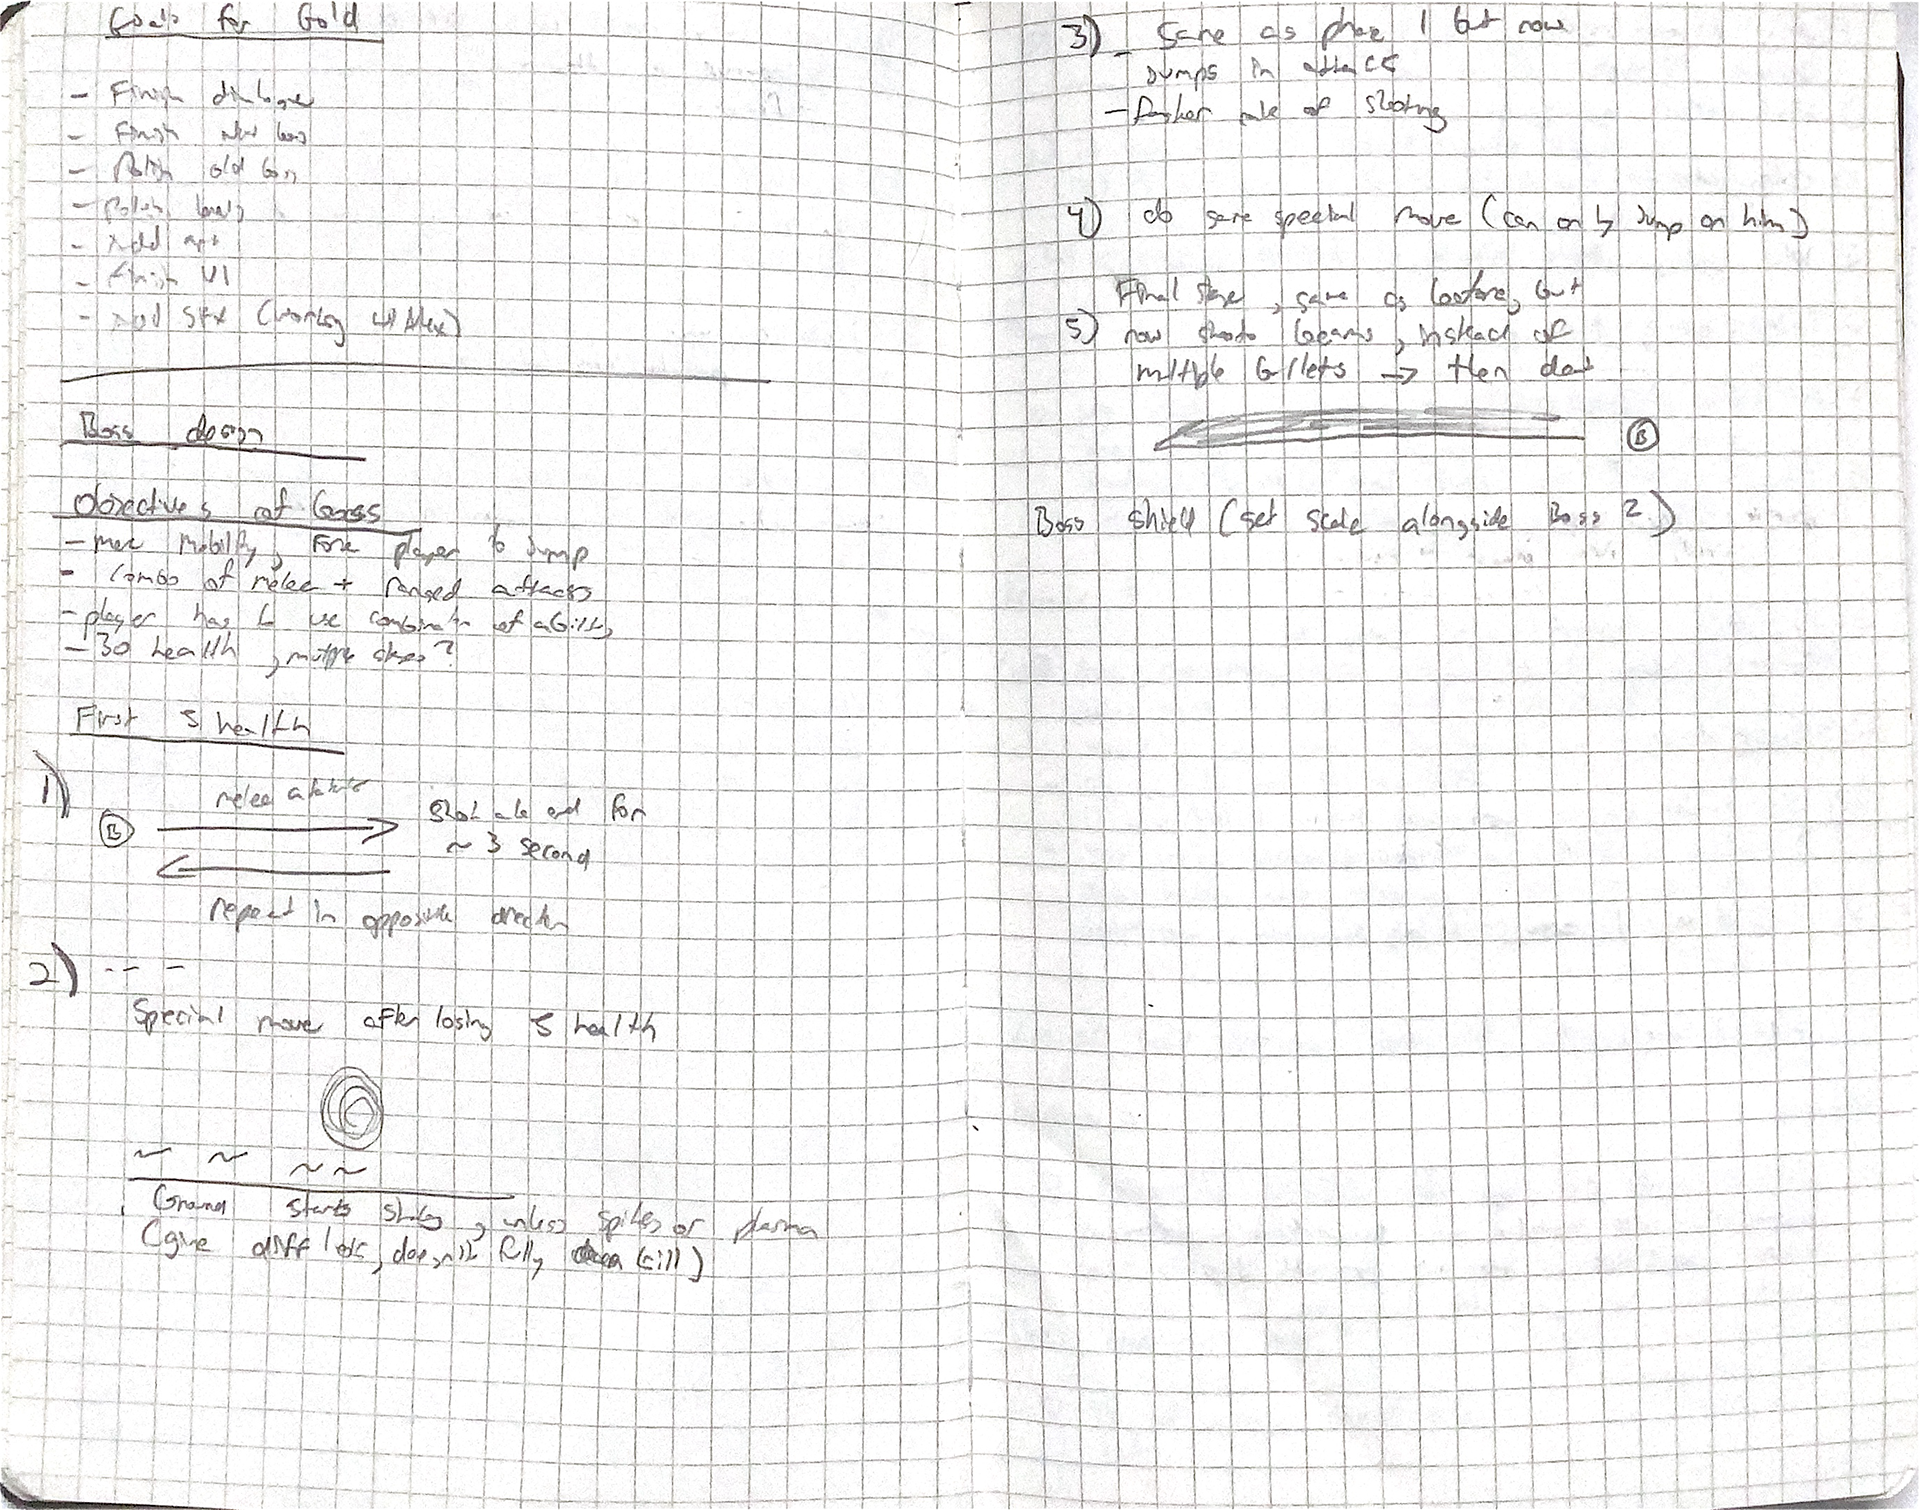 Goals for Gold
- Finish dialogue
- Finish new boss
- Polish old boss
- Polish levels
- Add art
- Finish UI
- Add SFX (working w/ Alex)
Boss design
Objectives of boss
- more mobility, force player to jump
- combo of melee + ranged attacks
- player has to use combination of ability
- 30 health, multiple stages?
First 5 health
1)
melee attack
B
Shot at end for
~ 3 second
repeat in opposite direction
2) -- -
Special move after losing 5 health
Ground starts shaking, unless spikes or plasma
(give diff loc, doesn't fully kill)
3) - Same as phase 1 but now
jumps in attack
- Faster rate of shooting
4) do same special move (can only jump on him)
Final stage, same as before, but
5) now shoots beams, instead of
multiple bullets → then dead
B
Boss shield (set scale alongside Boss 2)